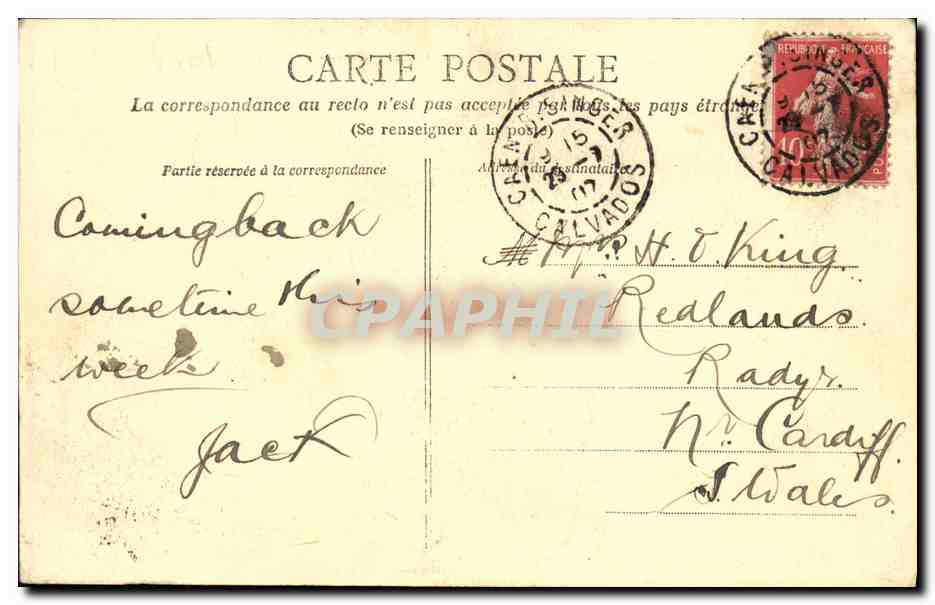 CARTE POSTALE
La correspondance au recto n'est pas acceptée par tous les pays étrangers
(Se renseigner à la poste)
Partie réservée à la correspondance
Adresse du destinataire
REPUBLIQUE FRANÇAISE
10
CAEN SINGER
15
CALVADOS
CAEN SINGER
15
23
CALVADOS
Coming back
sometime this
week
Jack
H. O. King.
Redlands.
Radyr.
Nr. Cardiff.
S. Wales.
CPAPHIL